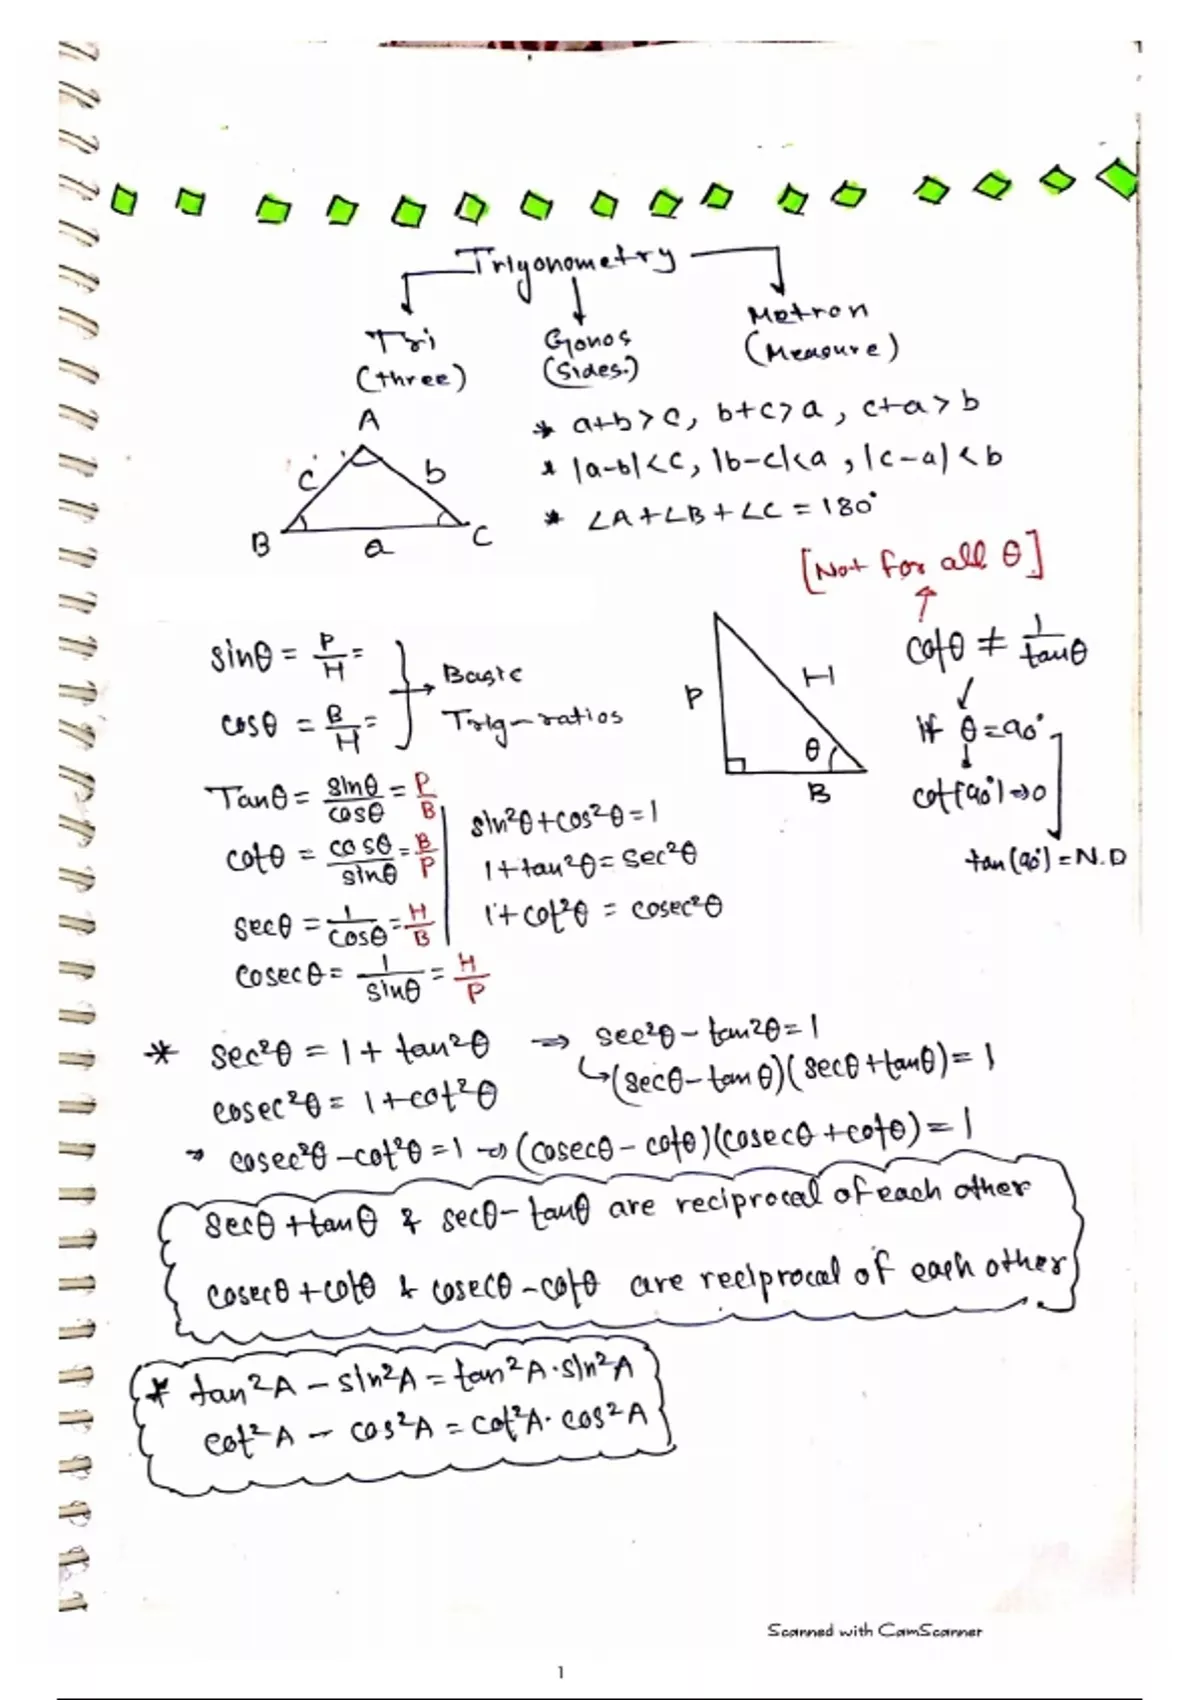 Trigonometry
Tri Gonos Metron
(three) (Sides.) (Measure)
A
c b
B a C
* a+b>c, b+c>a, c+a>b
* |a-b|<c, |b-c|<a, |c-a|<b
* ∠A+∠B+∠C=180°
[Not for all θ]
cotθ ≠ 1/tanθ
if θ=90°
cot(90°)⇒0
tan(90°)=N.D
P H
θ
B
sinθ = P/H =
cosθ = B/H =
} → Basic
Trig-ratios
Tanθ = sinθ/cosθ = P/B
cotθ = cosθ/sinθ = B/P
secθ = 1/cosθ = H/B
cosecθ = 1/sinθ = H/P
sin²θ+cos²θ=1
1+tan²θ=sec²θ
1+cot²θ = cosec²θ
* sec²θ = 1+tan²θ ⇒ sec²θ-tan²θ=1
↳(secθ-tanθ)(secθ+tanθ)=1
cosec²θ = 1+cot²θ
→ cosec²θ-cot²θ=1 ⇒ (cosecθ-cotθ)(cosecθ+cotθ)=1
secθ+tanθ & secθ-tanθ are reciprocal of each other
cosecθ+cotθ & cosecθ-cotθ are reciprocal of each other
* tan²A - sin²A = tan²A·sin²A
cot²A - cos²A = cot²A·cos²A
Scanned with CamScanner
1